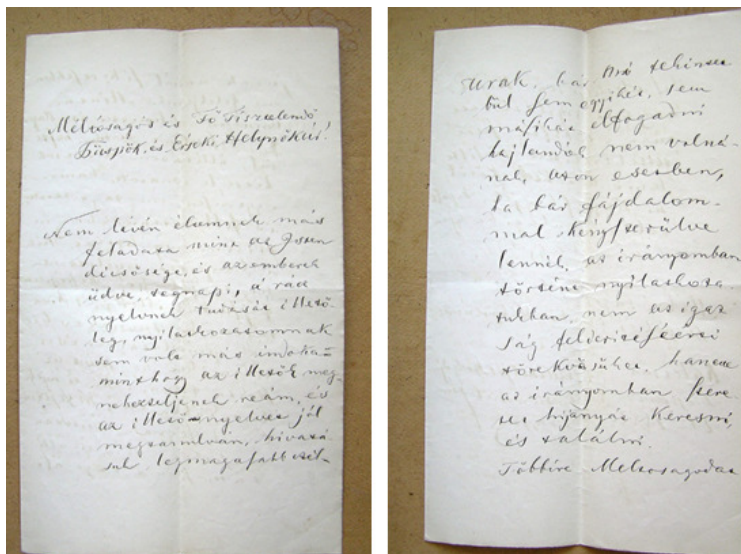 Méltóságos és Fő Tisztelendő
Püspök, és Érseki Helynökur!
Nem lévén élemnek más
feladata mint az Isten
dicsősége, és az emberek
üdve, tegnapi, a rácz
nyelvnek tudását illető-
leg, nyilatkozatomnak
sem volt más indoka
minthogy az illetők meg
nehezteljenek reám, és
az illető nyelvet jól
megtanulván, hivatá
sul legmagasabb czél-
urak, bár
bül sem egyikét, sem
másikát elfogadni
hajlandók nem volná-
nak, azon esetben,
ha bár fájdalom-
mal kényszerülve
lennék, az irányomban
történt nyilatkoza
tukban, nem az igaz
ság felderítéséérti
törekvésüket, hanem
az irányomban szere
tet hijányát keresni,
és találni.
Többire Méltóságodat